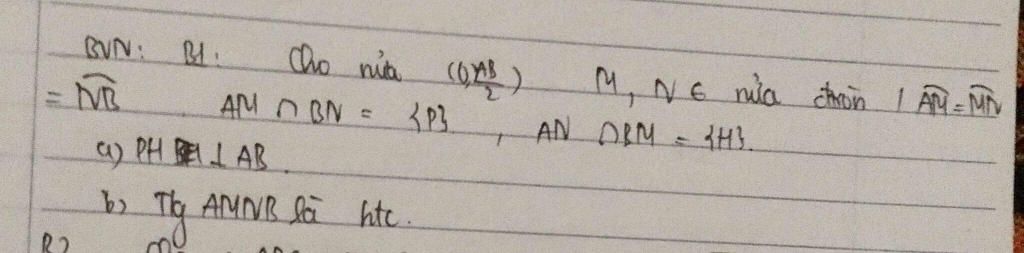 BVN: B1: Cho nửa (O, AB/2) M, N ∈ nửa tròn / AM = MN
= NB AM ∩ BN = {P}, AN ∩ BM = {H}.
a) PH ⊥ AB.
b) Tg AMNB là htc.
B2